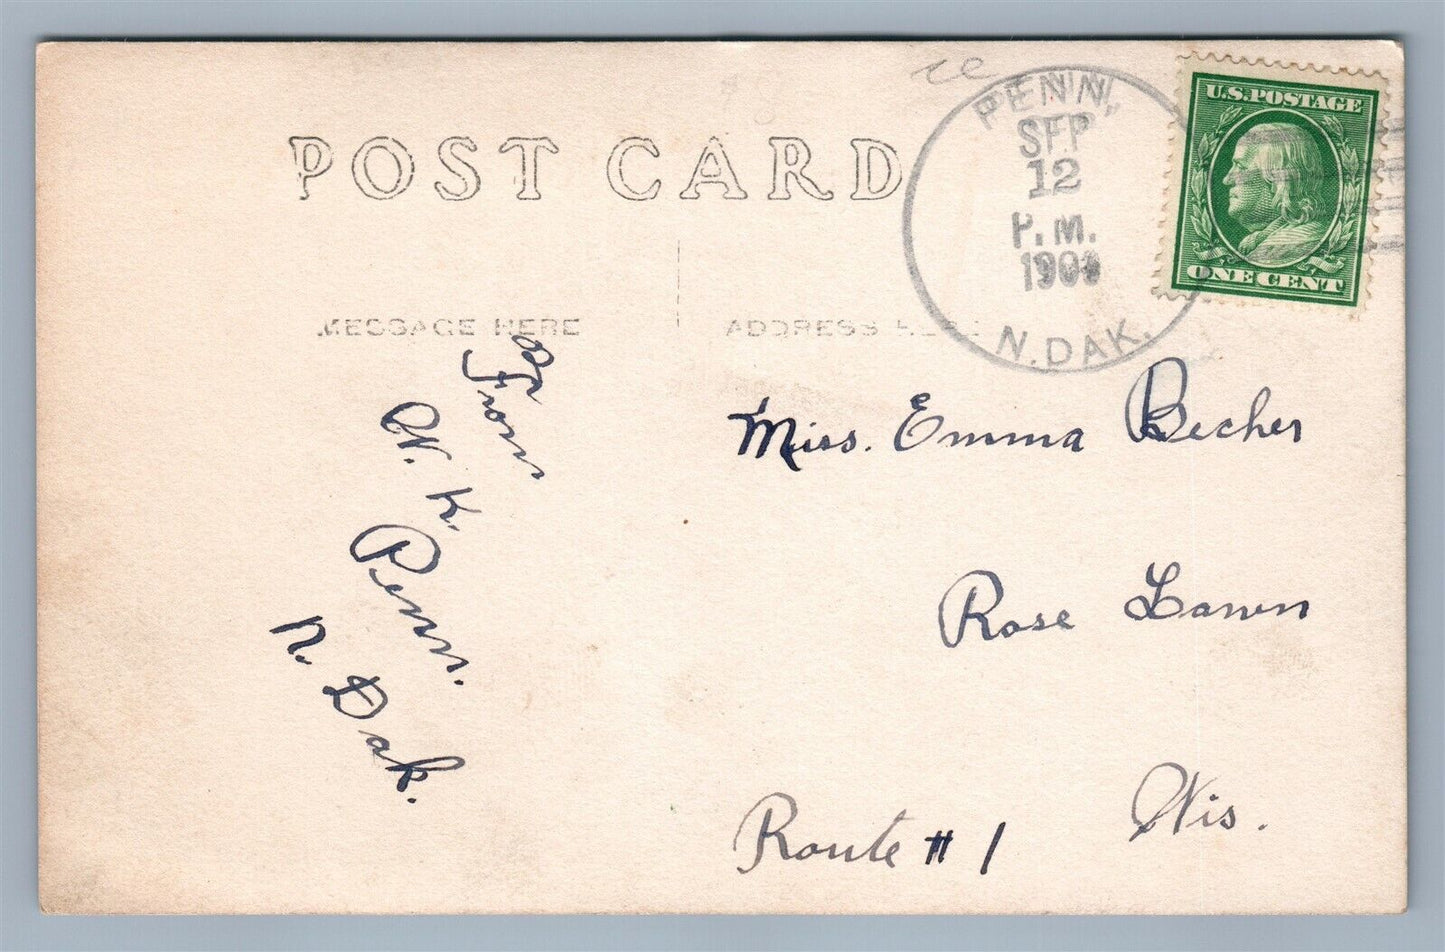 POST CARD
MESSAGE HERE
ADDRESS HERE
PENN,
SEP
12
P.M.
N. DAK.
U.S. POSTAGE
ONE CENT
From
W. K.
Penn.
N. Dak.
Miss. Emma Becher
Rose Lawn
Wis.
Route # 1